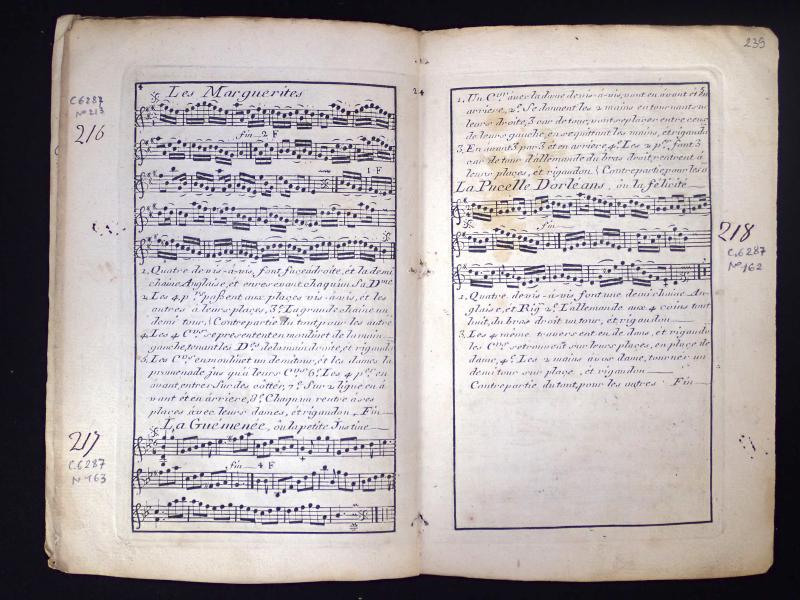 4
Les Marguerites
C.6287
N° 213
216
fin 2 F
1 F
1. Quatre de vis-a-vis, font face a droite, et la demi
chaine Anglaise, et en revenant chaqu'un Sa D.me
2. Les 4 p.res passent aux places vis-a-vis, et les
autres à leurs places, 3.º La grande chaine un
demi tour, (Contrepartie du tout pour les autre
4. Les 4 C.ers se presentent en moulinet de la main
gauche, tenant les D.es de la main droite, et rigaud
5. Les C.ers en moulinet un demi tour, et les dames la
promenade, jus qu'à leurs C.ers 6.º Les 4 p.er en
avant entre
Sur des côttés, 7.º Sur 2 ligne en á
vant et en árriere, 8.º Chaqu'un rentre à ses
places ávec leurs dames, et rigaudon. Fin
La Guémenée, ou la petite Justine
217
C.6287
N° 163
fin 4 F
24
239
5
1. Un C.er avec la dame de vis-à-vis, vont en avant et en
arriere, 2.º Se donnent les 2 mains en tournant sur
leurs droite, 3 car de tour, vont se placer entre ceux
de leurs gauche, en se quittant les mains, et rigaud
3. En avant 3 par 3 et en arriere, 4.º Les 2 p.er font 3
car de tour d'allemande du bras droit, rentrent à
leurs places, et rigaudon (Contrepartie pour les
La Pucelle Dorléans, ou la félicité
fin
218
C.6287
N° 162
1. Quatre de vis-à-vis font une demi chaine An-
glaise, et Rig.n 2.º L'allemande aux 4 coins tout
huit, du bras droit un tour, et rigaudon
3. Les 4 même travers est en de dans, et rigaud
les C.ers se trouvent sur leurs places, en place de
dame, 4.º Les 2 mains à vos dame, tourner un
demi tour sur place, et rigaudon
Contrepartie du tout, pour les autres Fin